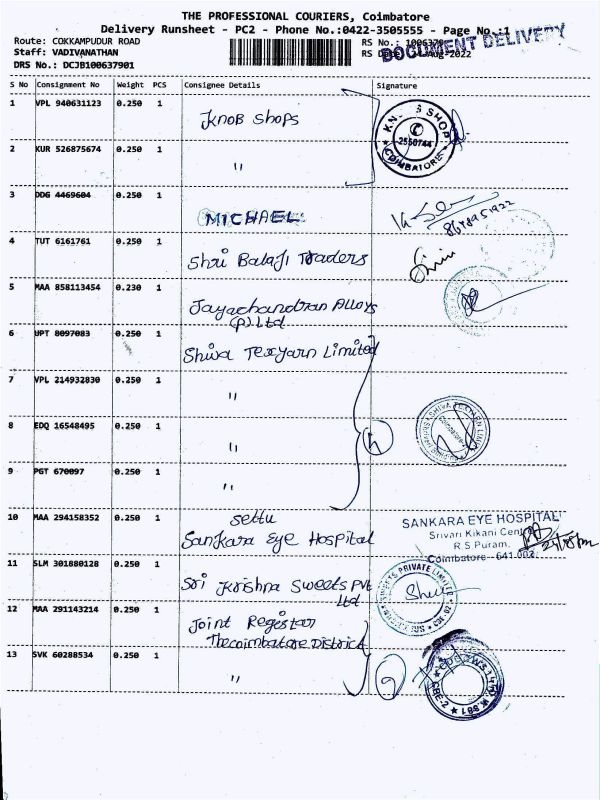 THE PROFESSIONAL COURIERS, Coimbatore
Delivery Runsheet - PC2 - Phone No.:0422-3505555 - Page No.:1
Route: COKKAMPUDUR ROAD
RS No.:
DOCUMENT DELIVERY
Staff: VADIVANATHAN
RS Date: Aug-2022
DRS No.: DCJB100637901
S No Consignment No Weight PCS Consignee Details Signature
1 VPL 940631123 0.250 1 Knob Shops
SHOP
2550744
COIMBATORE
2 KUR 526875674 0.250 1 "
3 DDG 4469604 0.250 1 MICHAEL
4 TUT 6161761 0.250 1 Shri Balaji Traders
5 MAA 858113454 0.230 1 Jayachandran Alloys
(P) Ltd
6 UPT 8097083 0.250 1 Shiva Texyarn Limited
7 VPL 214932830 0.250 1 "
8 EDQ 16548495 0.250 1 "
9 PGT 670097 0.250 1 "
10 MAA 294158352 0.250 1 Settu
Sankara Eye Hospital
SANKARA EYE HOSPITAL
Srivari Kikani Centre
R.S Puram,
Coimbatore - 641 002.
11 SLM 301880128 0.250 1 Sri Krishna Sweets Pvt
Ltd
SWEETS PRIVATE LIMITED
12 MAA 291143214 0.250 1 Joint Registar
The Coimbatore District
13 SVK 60288534 0.250 1 "
CBE-2